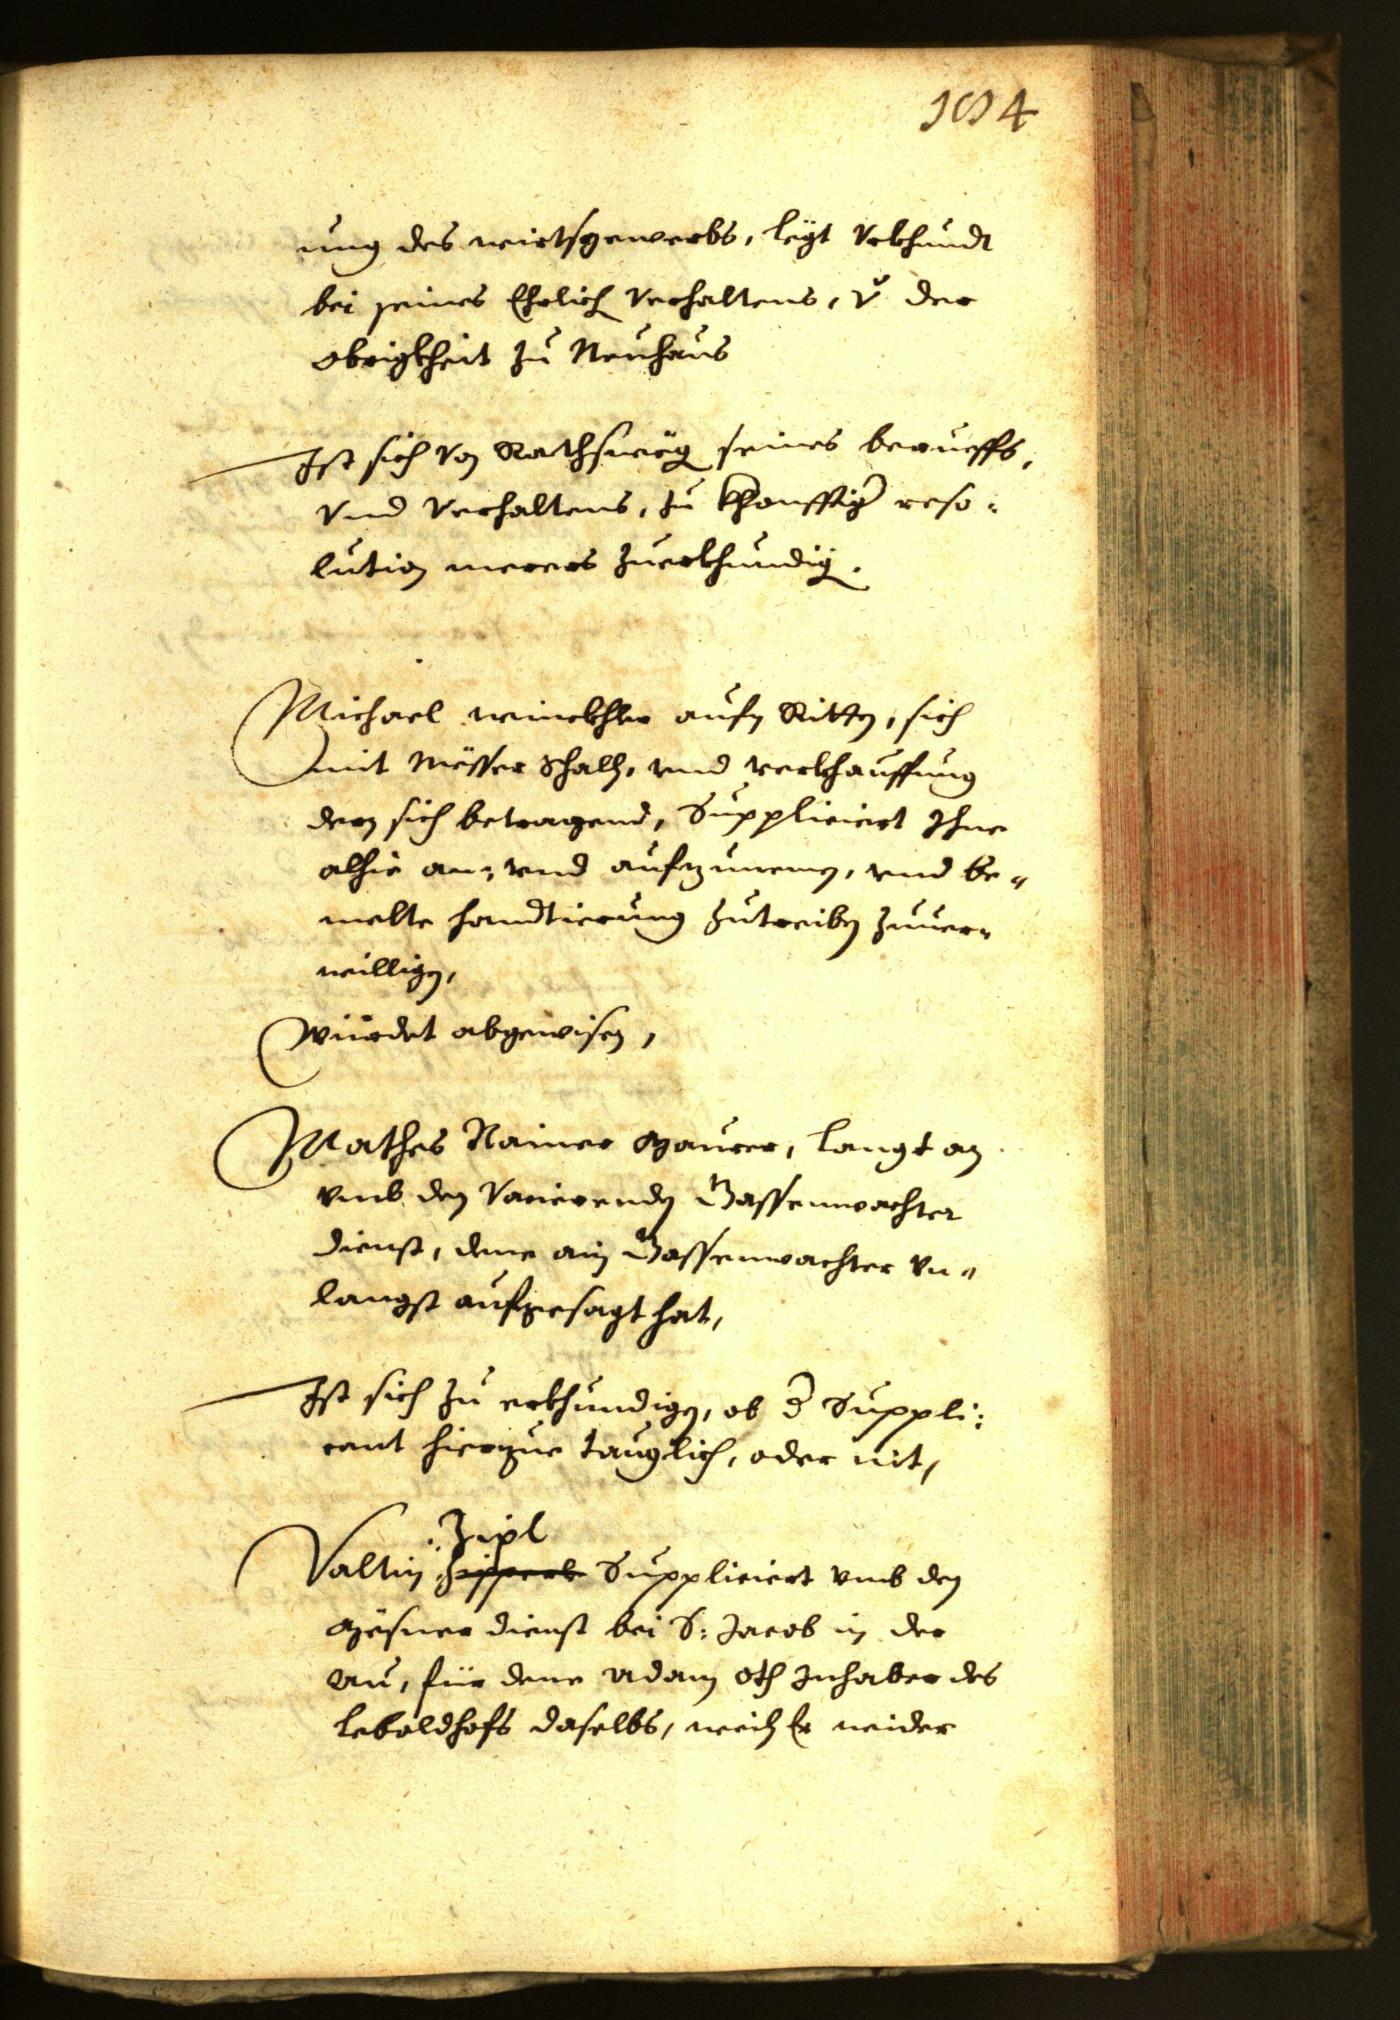 104
ung des wirtsgewerbs, legt Vrkhundt
bei seines Ehrlich Verhaltens, v der
obrigkheit zu Neuhaus
Ist sich von Rathsweg seines berueffs,
vnd verhaltens, zu khonfftig reso:
lution merers zuerkhundig.
Michael winckhler aufn Ritten, sich
mit Mësser Schall, vnd verkhauffung
dern sich betragend, Suppliciert Ihne
alhie an: vnd aufzunemen, vnd be=
melte handtierung zutreiben zuuer=
willigen,
Würdet abgewisen,
Mathes Rainer Maurer, langt an
vmb den Vacierenden Gassenwachter
dienst, deme ain Gassenwachter vn=
langst aufgesagt hat,
Ist sich zu erkhundigen, ob d Suppli:
cant hierzue tauglich, oder nit,
Zipl
Valtin Suppliciert vmb den
Mësner dienst bei S: Jacob in der
Au, für deme Adam Oth Inhaber des
leboldhofs daselbs, weil Er weider